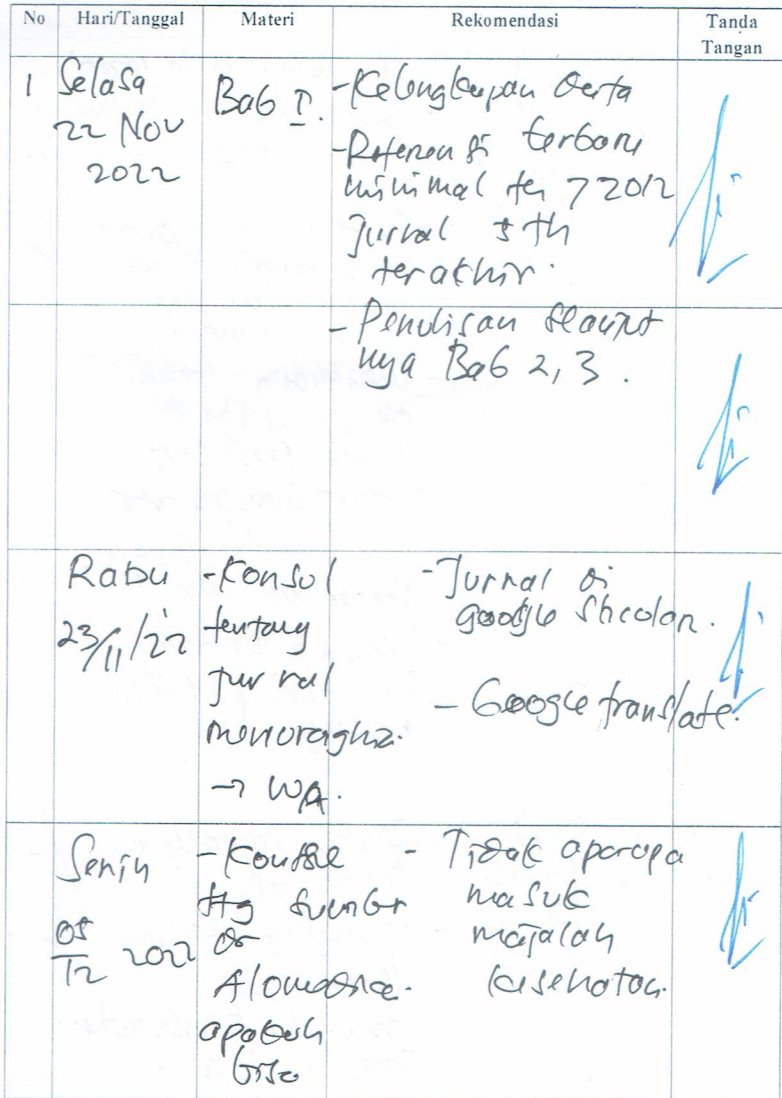 No Hari/Tanggal Materi Rekomendasi Tanda Tangan
1 Selasa
22 Nov
2022
Bab I.
-Kelengkapan data
-Referensi terbaru
minimal th 7 2012
Jurnal 5 th
terakhir.
- Penulisan
nya Bab 2, 3.
Rabu
23/11/22
-Konsul
tentang
jurnal
menoragia.
→ WA.
-Jurnal di
google Shcolar.
- Google translate.
Senin
05/12 2022
-Konsul
ttg sumber
dr
apakah
bisa
- Tidak apa-apa
masuk
majalah
kesehatan.